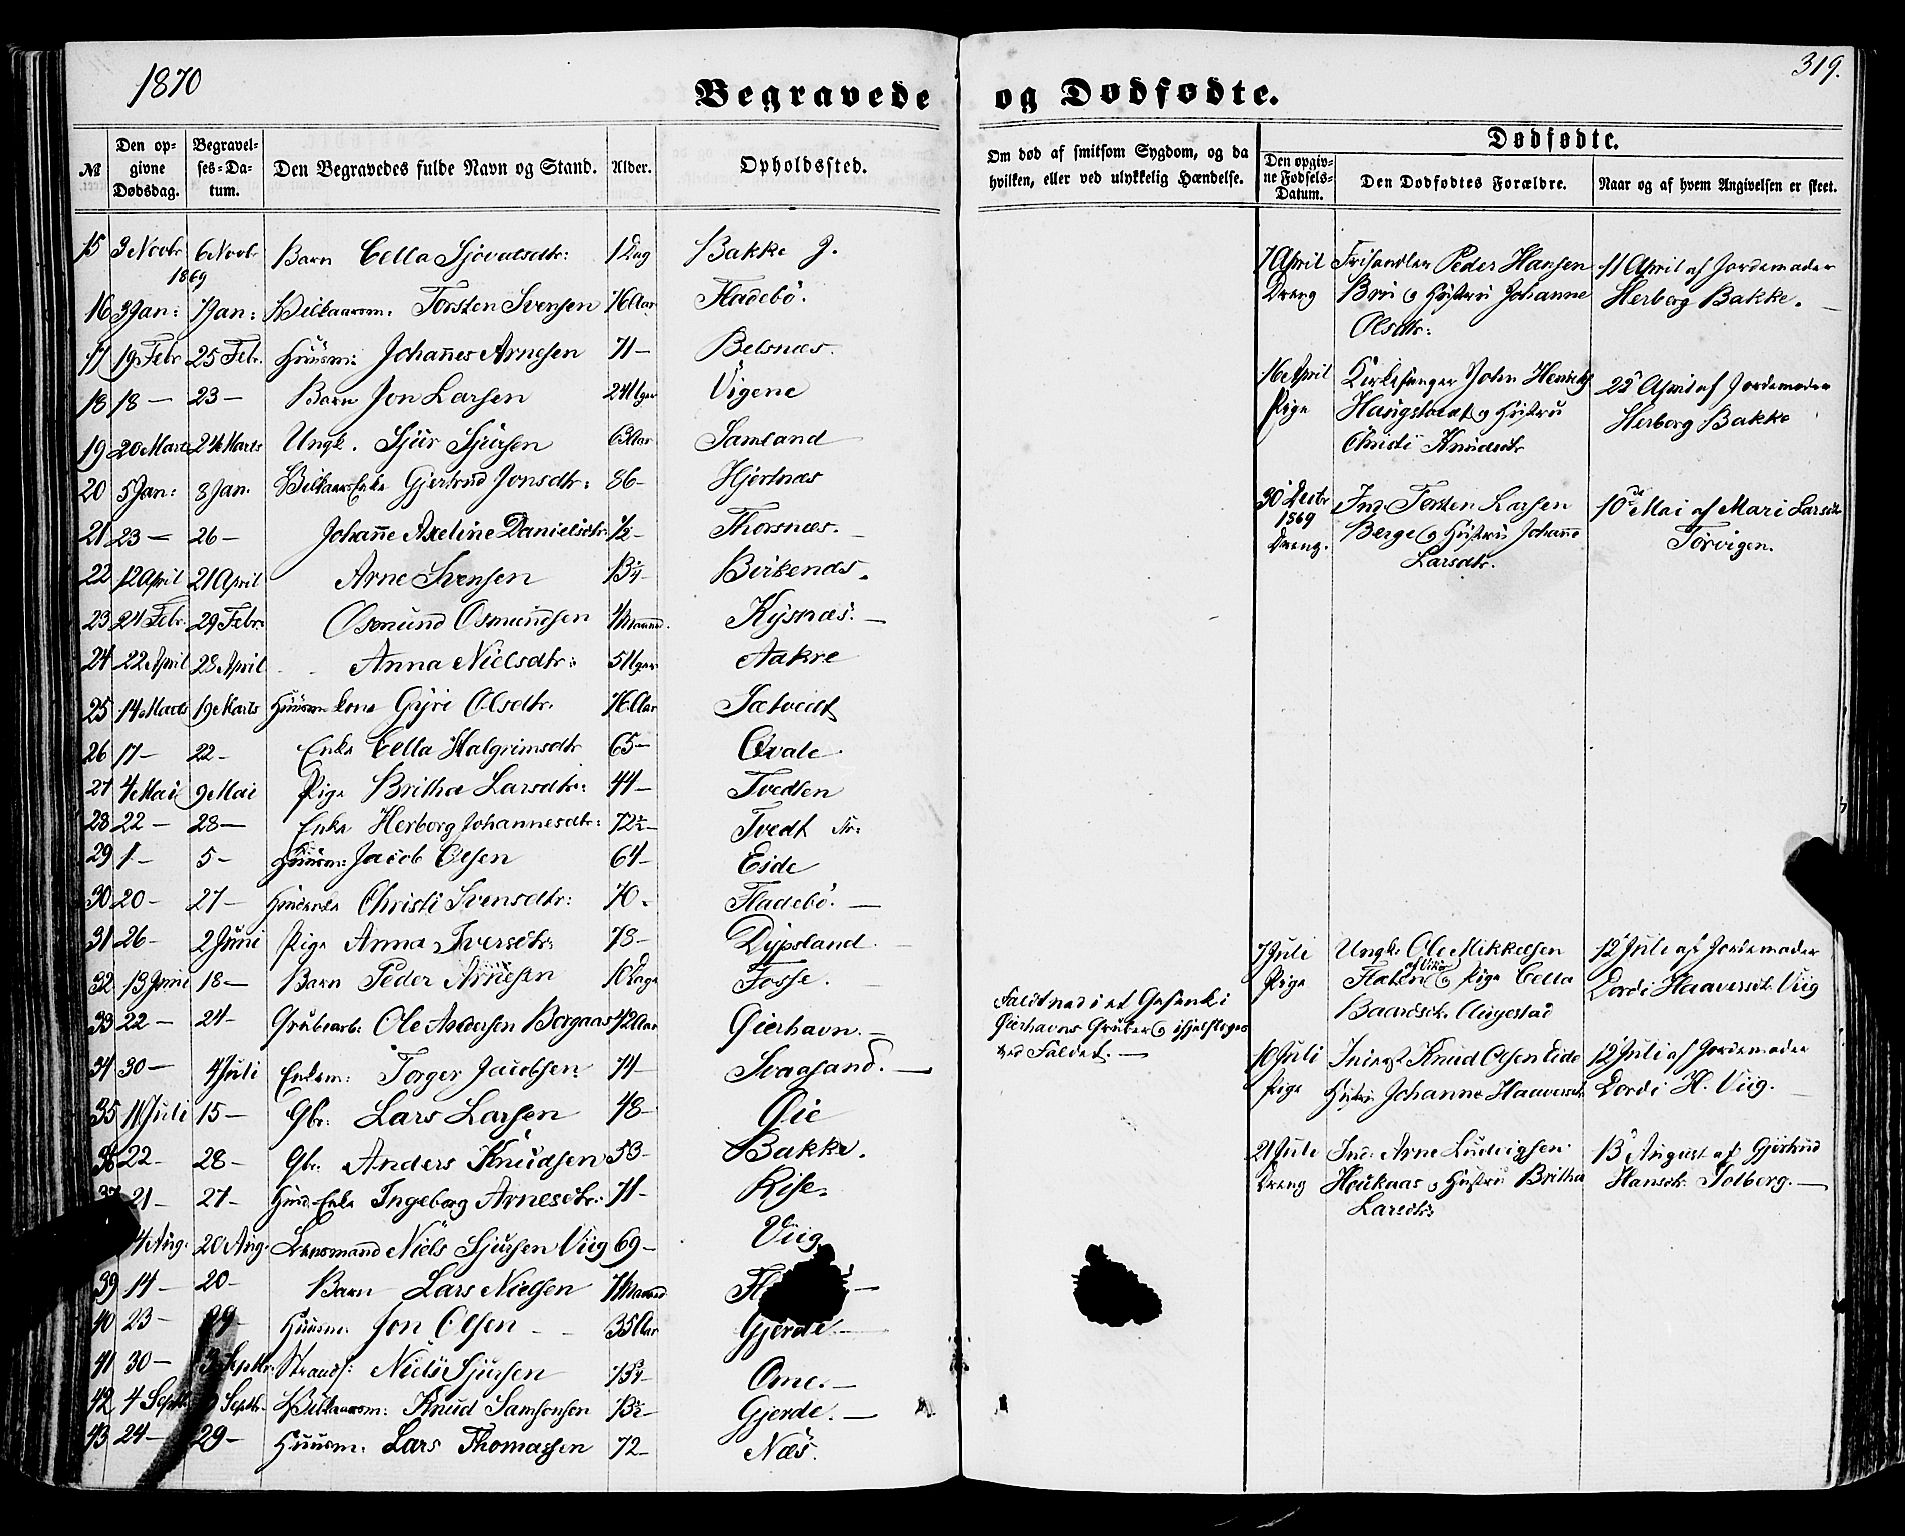 1870
319.
Begravede og Dødfødte.
№ Den opgivne Dødsdag. Begravelses-Datum. Den Begravedes fulde Navn og Stand. Alder. Opholdssted. Om død af smitsom Sygdom, og da hvilken, eller ved ulykkelig Hændelse.
Dødfødte.
Den opgivne Fødsels-Datum. Den Dødfødtes Forældre. Naar og af hvem Angivelsen er skeet.
15 3 Novbr 6 Novbr 1869 Barn Cella Sjovatsdtr: 1 Dag Bakke J.
16 3 Jan: 7 Jan: Vilkaarsm: Torsten Svensen 76 Aar Fladebö.
17 19 Febr 25 Febr. Huusm: Johannes Arnesen 71 — Belsnæs.
18 18 — 23 — Barn Jon Larsen 2 Uger Vigene
19 20 Marts 24 Marts Ungk. Sjur Sjursen 63 Aar Samland
20 5 Jan: 8 Jan. Vilkaars Enke Gjertrud Jonsdtr: 86 — Hjertnæs
21 23 — 26 — Johanne Axeline Danielsdtr. ½ — Thorsnæs. —
22 12 April 21 April Arne Svensen Birkenæs.
23 24 Febr. 29 Febr. Osmund Osmundsen 4 Maaned. Kysnæs. —
24 22 April 28 April Anna Nielsdtr: 5 Uger Aakre
25 14 Marts 19 Marts Huusm kone Gyri Olsdtr. 76 Aar Sætvedt
26 17 — 22 — Enke Cella Halgrimsdtr 65 — Qvale.
27 4 Mai 9 Mai Pige Britha Larsdtr: 44 — Tvedten
28 22 — 28 — Enke Herborg Johannesdtr: 72½ — Tvedt Nr:
29 1 — 5 — Huusm: Jacob Olsen 64 — Eide
30 20 — 27 — Christi Svensdtr: 70 — Fladebö. —
31 26 — 2 Juni Pige Anna Iversdtr. 78 — Dypsland. —
32 13 Juni 18 — Barn Peder Arnesen 10 Dage Fosse. —
33 22 — 24 — Grubearb: Ole Andersen Borgaas 42 Aar Ølerhavn. —
34 30 — 4 Juli Enkem: Torger Jacobsen 74 — Svaasand. —
35 11 Juli 15 — Gbr: Lars Larsen 48 — Øie
36 22 — 28 — Gbr: Anders Knudsen 53 — Bakke.
37 21 — 27 — Huus Enke Ingeborg Arnesdtr: 71 — Rise.
14 Aug. 20 Aug. Lensmand Niels Sjursen Viig 69 — Viig
39 14 — 20 — Barn Lars Nielsen 7 Maaned
40 23 — 29 — Huusm: Jon Olsen 35 Aar Gjerde. —
41 30 — 3 Septbr. Niels Sjursen 73¾ — Ome. —
42 4 Septb. Septbr. Vilkaarsm: Knud Samsonsen 73½ — Gjerde. —
43 24 — 29 — Huusm: Lars Thomassen 72 — Næs.
Faldt ned i et Gesenk i
Ølerhavns Gruber og ihjelsloges
ved Faldet. —
7 April Dreng
Frihandler Peder Hansen
Bru og Hustru Johanne
Olsdtr:
11 April af Jordemoder
Herborg Bakke. —
16 April Pige
Kirkesanger John Henriks
Haugstvedt og Hustru
Christi Knudsdtr
22 April af Jordemoder
Herborg Bakke
30 Decbr 1869 Dreng.
Ind. Torsten Larsen
Berge og Hustru Johanne
Larsdtr.
10de Mai af Mari Larsdtr
Törvigen.
7 Juli Pige
Ungk. Ole Mikkelsen
Flaten af Vikör og Pige Cella
Baardsdtr. Augestad
12 Juli af Jordemoder
Dordi Haaversdtr. Viig
10 Juli Pige
Inderst Knud Olsen Eide
Hustru Johanne Haaversdtr
12 Juli af Jordemoder
Dordi H. Viig. —
21 Juli Dreng
Ind: Arne Ludvigsen
Houkaas og Hustru Britha
Larsdtr
13 August af Gjertrud
Hansdtr. Solberg. —